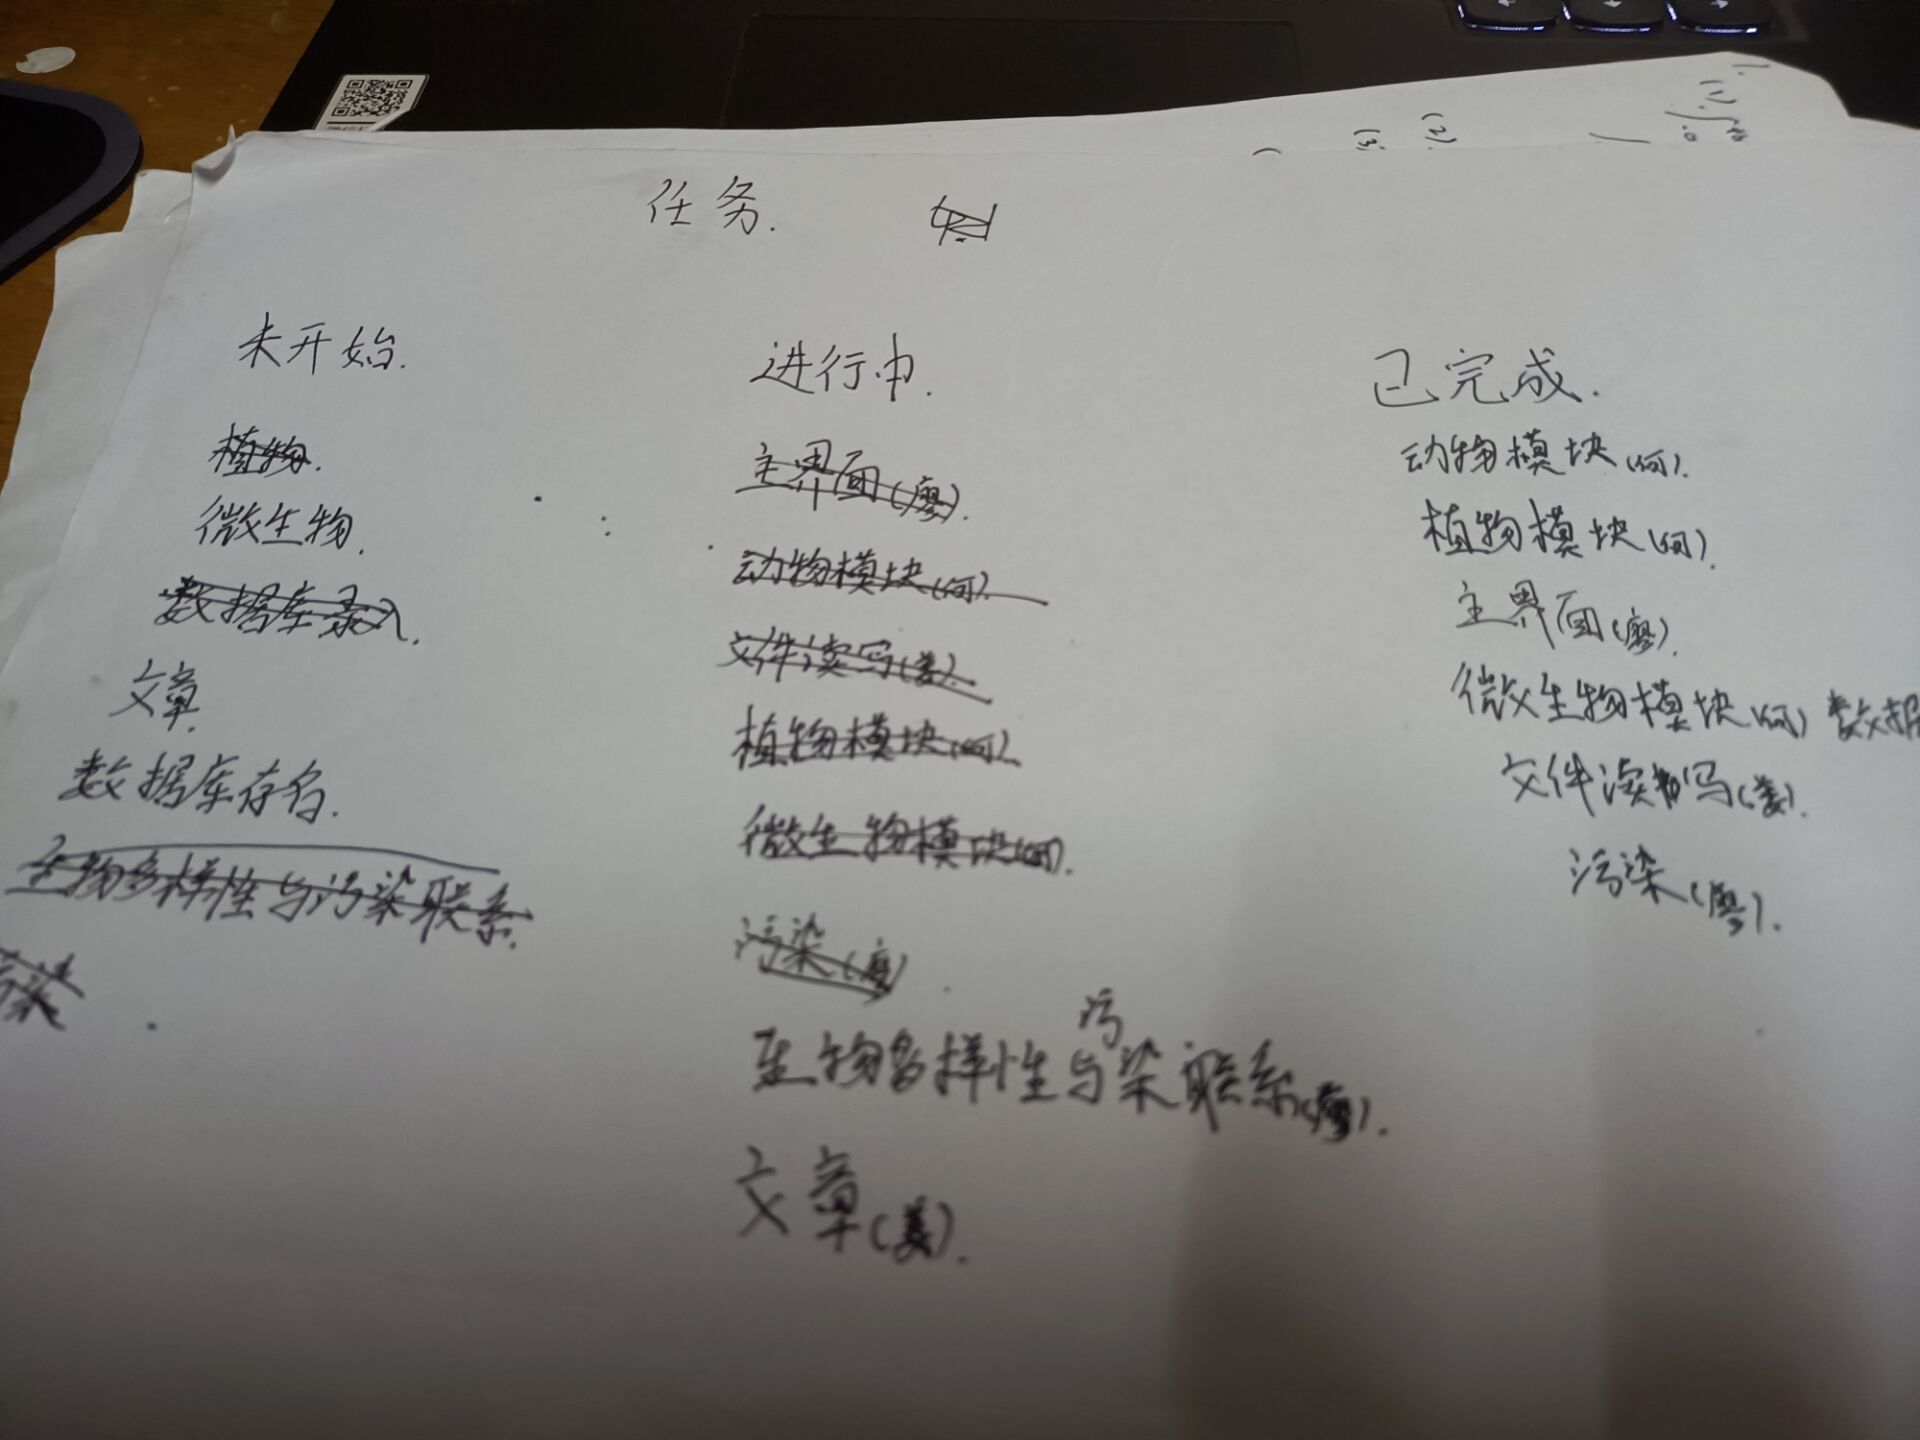 任务.
未开始.
植物.
微生物.
数据库录入.
文章.
数据库存名.
生物多样性与污染联系.
污染
进行中.
主界面(廖).
动物模块(何).
文件读写(姜).
植物模块(何).
微生物模块(何).
污染(廖)
生物多样性与污染联系(廖).
文章(姜).
已完成.
动物模块(何).
植物模块(何).
主界面(廖).
微生物模块(何) 数据
文件读写(姜).
污染(廖).
1.
(1).
(2).
(3)